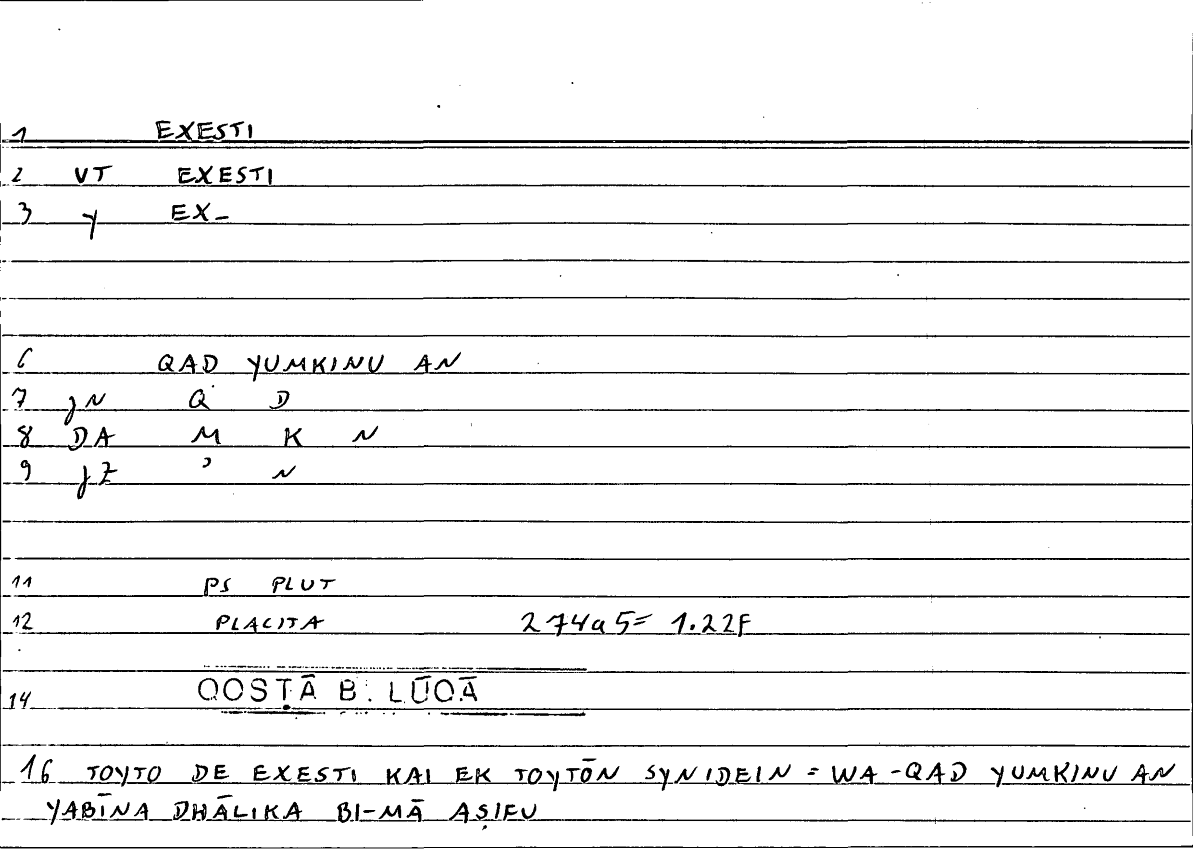 1 EXESTI
2 VT EXESTI
3 y EX-
6 QAD YUMKINU AN
7 JN Q D
8 DA M K N
9 JZ ʾ N
11 PS PLUT
12 PLACITA 274a5= 1.22F
14 QOSṬĀ B. LŪQĀ
16 TOYTO DE EXESTI KAI EK TOYTŌN SYNIDEIN = WA-QAD YUMKINU AN
YABĪNA DHĀLIKA BI-MĀ AṢIFU